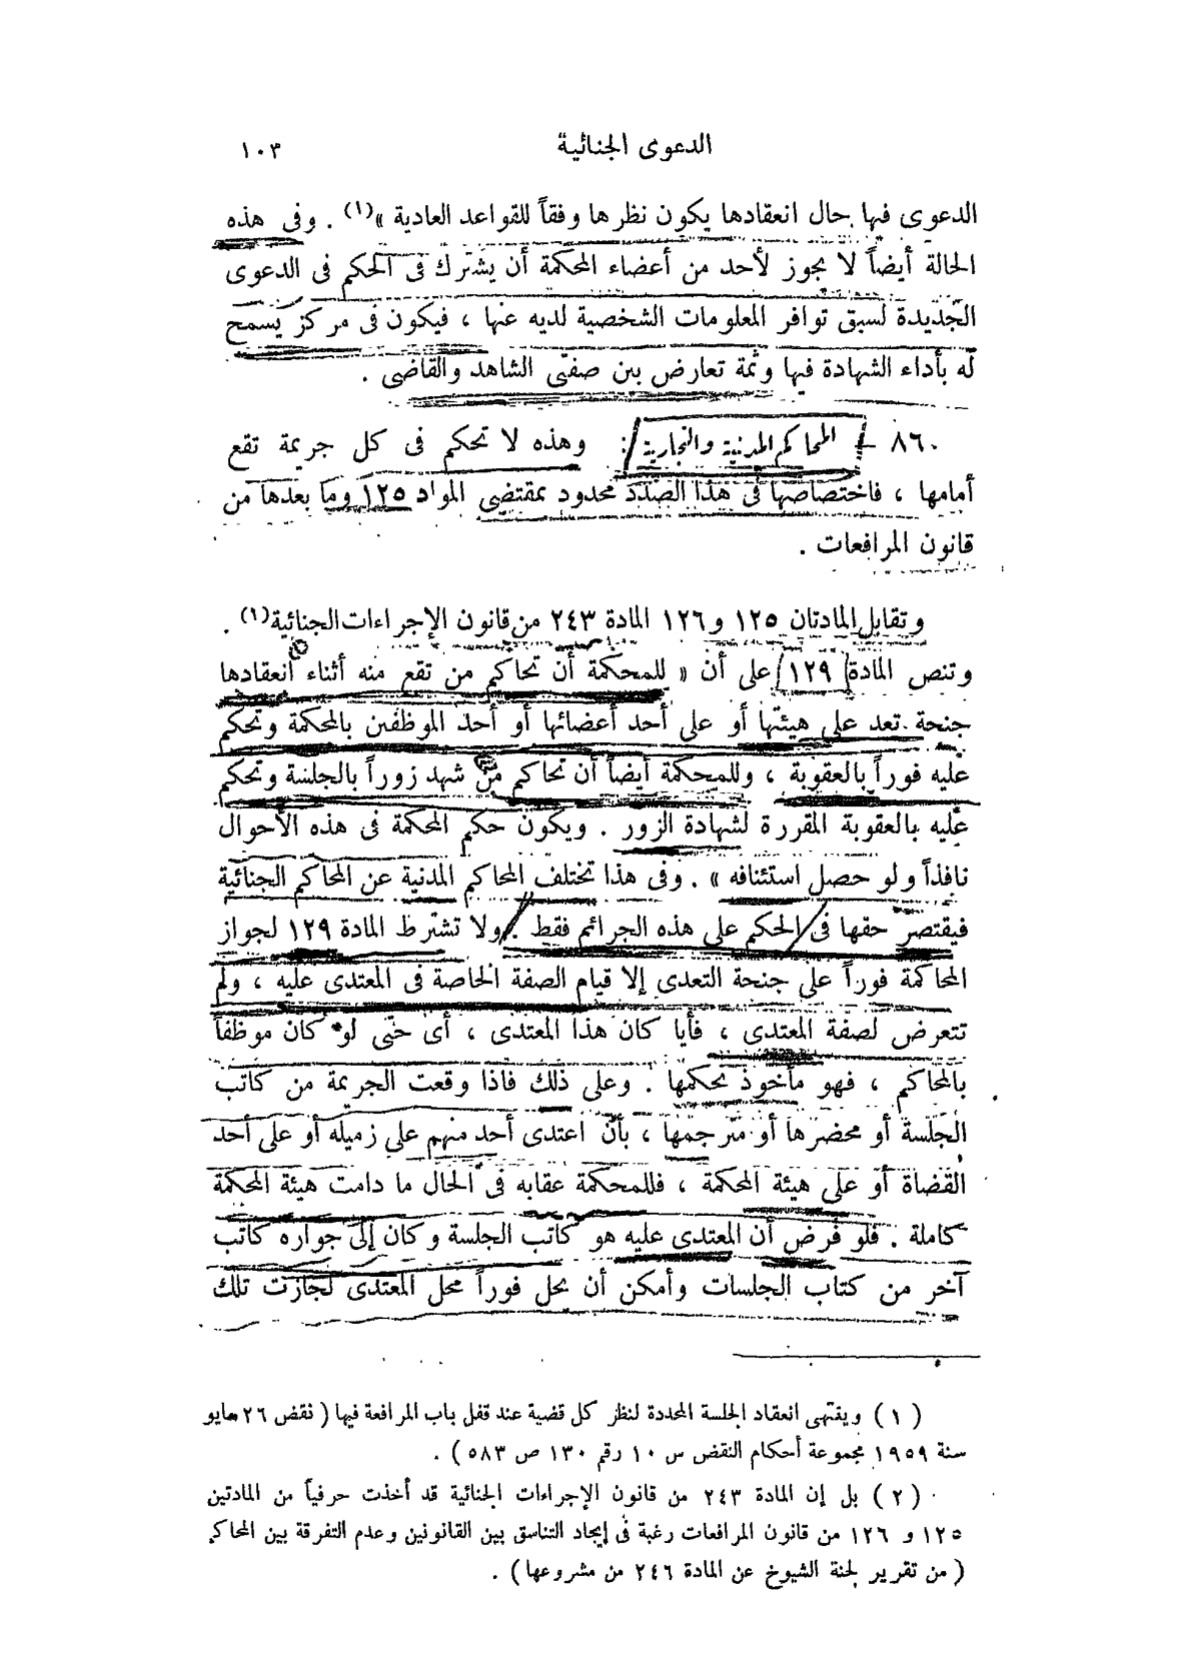 الدعوى الجنائية ١٠٣
الدعوى فيها حال انعقادها يكون نظرها وفقاً للقواعد العادية »(١) . وفى هذه
الحالة أيضاً لا يجوز لأحد من أعضاء المحكمة أن يشترك فى الحكم فى الدعوى
الجديدة لسبق توافر المعلومات الشخصية لديه عنها ، فيكون فى مركز يسمح
له بأداء الشهادة فيها وثمة تعارض بين صفتى الشاهد والقاضى .
٨٦٠ – المحاكم المدنية والتجارية : وهذه لا تحكم فى كل جريمة تقع
أمامها ، فاختصاصها فى هذا الصدد محدود بمقتضى المواد ١٢٥ وما بعدها من
قانون المرافعات .
وتقابل المادتان ١٢٥ و١٢٦ المادة ٢٤٣ من قانون الإجراءات الجنائية(٢) .
وتنص المادة ١٢٩ على أن « للمحكمة أن تحاكم من تقع منه أثناء انعقادها
جنحة تعد على هيئتها أو على أحد أعضائها أو أحد الموظفين بالمحكمة وتحكم
عليه فوراً بالعقوبة ، وللمحكمة أيضاً أن تحاكم من شهد زوراً بالجلسة وتحكم
عليه بالعقوبة المقررة لشهادة الزور . ويكون حكم المحكمة فى هذه الأحوال
نافذاً ولو حصل استئنافه » . وفى هذا تختلف المحاكم المدنية عن المحاكم الجنائية
فيقتصر حقها فى الحكم على هذه الجرائم فقط . ولا تشترط المادة ١٢٩ لجواز
المحاكمة فوراً على جنحة التعدى إلا قيام الصفة الخاصة فى المعتدى عليه ، ولم
تتعرض لصفة المعتدى ، فأيا كان هذا المعتدى ، أى حتى لو كان موظفاً
بالمحاكم ، فهو مأخوذ بحكمها . وعلى ذلك فاذا وقعت الجريمة من كاتب
الجلسة أو محضرها أو مترجمها ، بأن اعتدى أحد منهم على زميله أو على أحد
القضاة أو على هيئة المحكمة ، فللمحكمة عقابه فى الحال ما دامت هيئة المحكمة
كاملة . فلو فرض أن المعتدى عليه هو كاتب الجلسة وكان إلى جواره كاتب
آخر من كتاب الجلسات وأمكن أن يحل فوراً محل المعتدى لجازت تلك
(١) وينتهى انعقاد الجلسة المحددة لنظر كل قضية عند قفل باب المرافعة فيها ( نقض ٢٦ مايو
سنة ١٩٥٩ مجموعة أحكام النقض س ١٠ رقم ١٣٠ ص ٥٨٣ ) .
(٢) بل إن المادة ٢٤٣ من قانون الإجراءات الجنائية قد أخذت حرفياً من المادتين
١٢٥ و ١٢٦ من قانون المرافعات رغبة فى إيجاد التناسق بين القانونين وعدم التفرقة بين المحاكم
( من تقرير لجنة الشيوخ عن المادة ٢٤٦ من مشروعها ) .